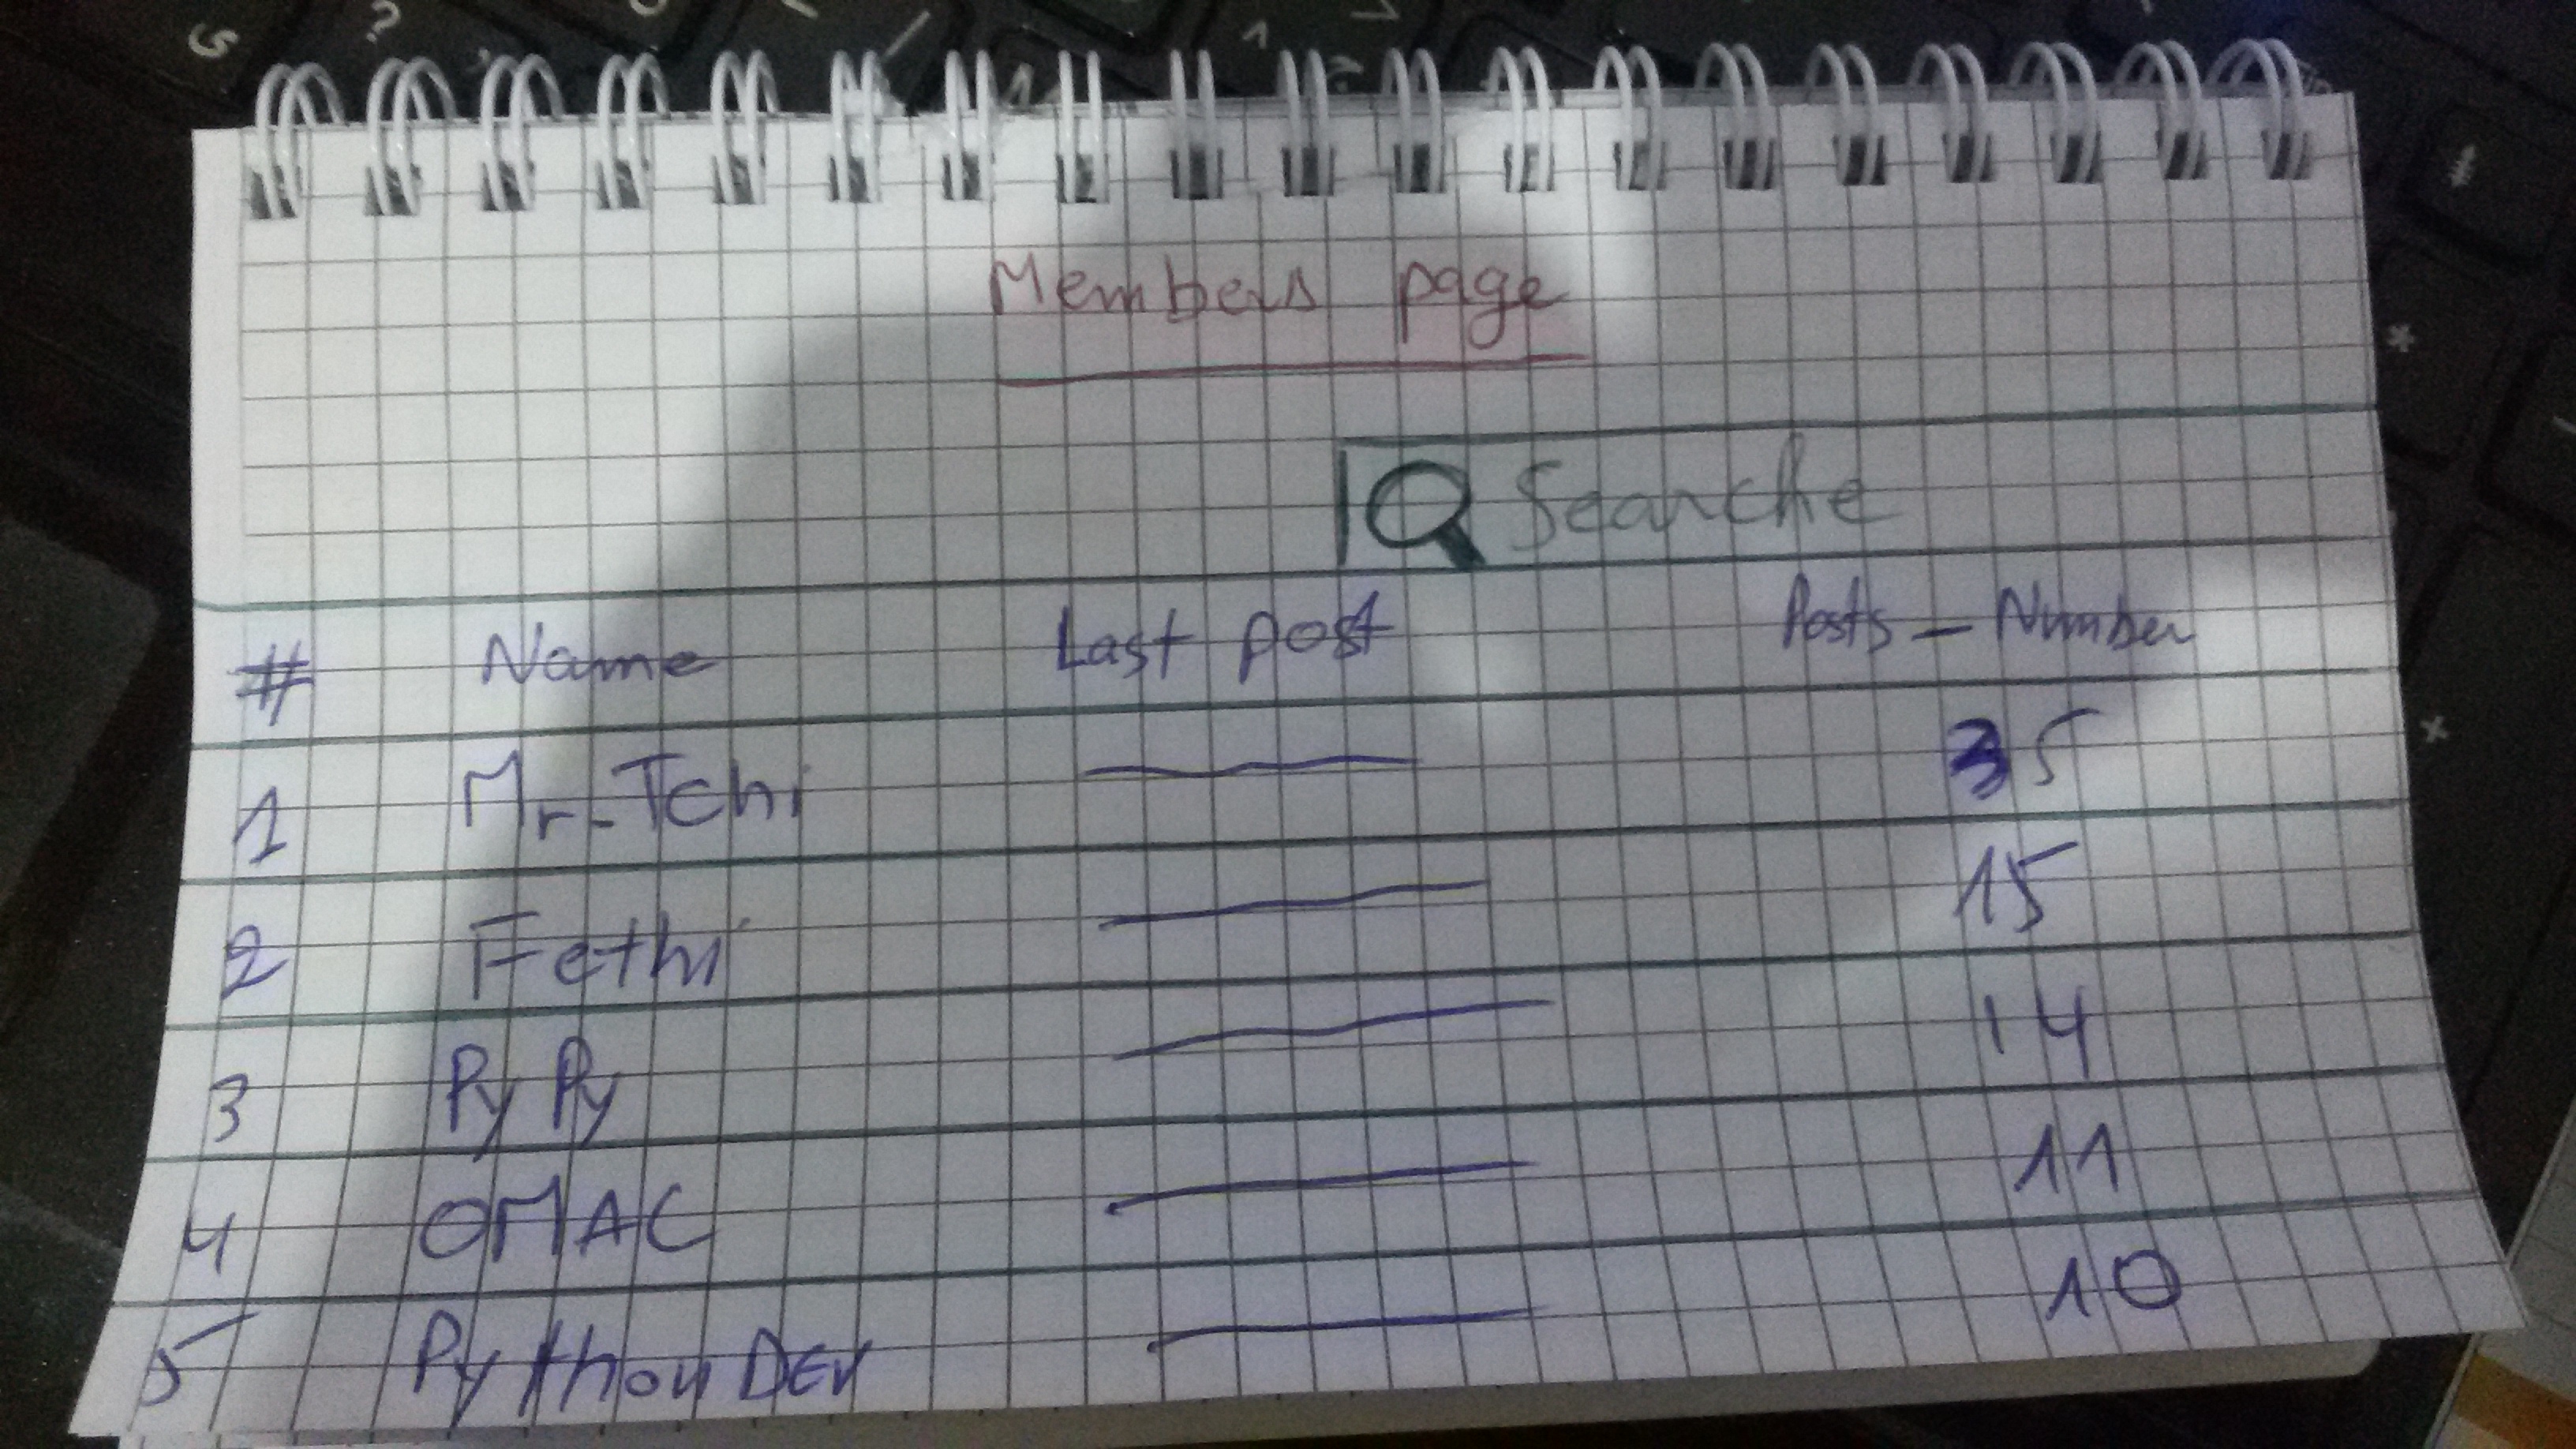 Members page
Searche
# Name Last post Posts - Number
1 Mr-Tchi 35
2 Fethi 15
3 PyPy 14
4 OMAC 11
5 PythonDev 10